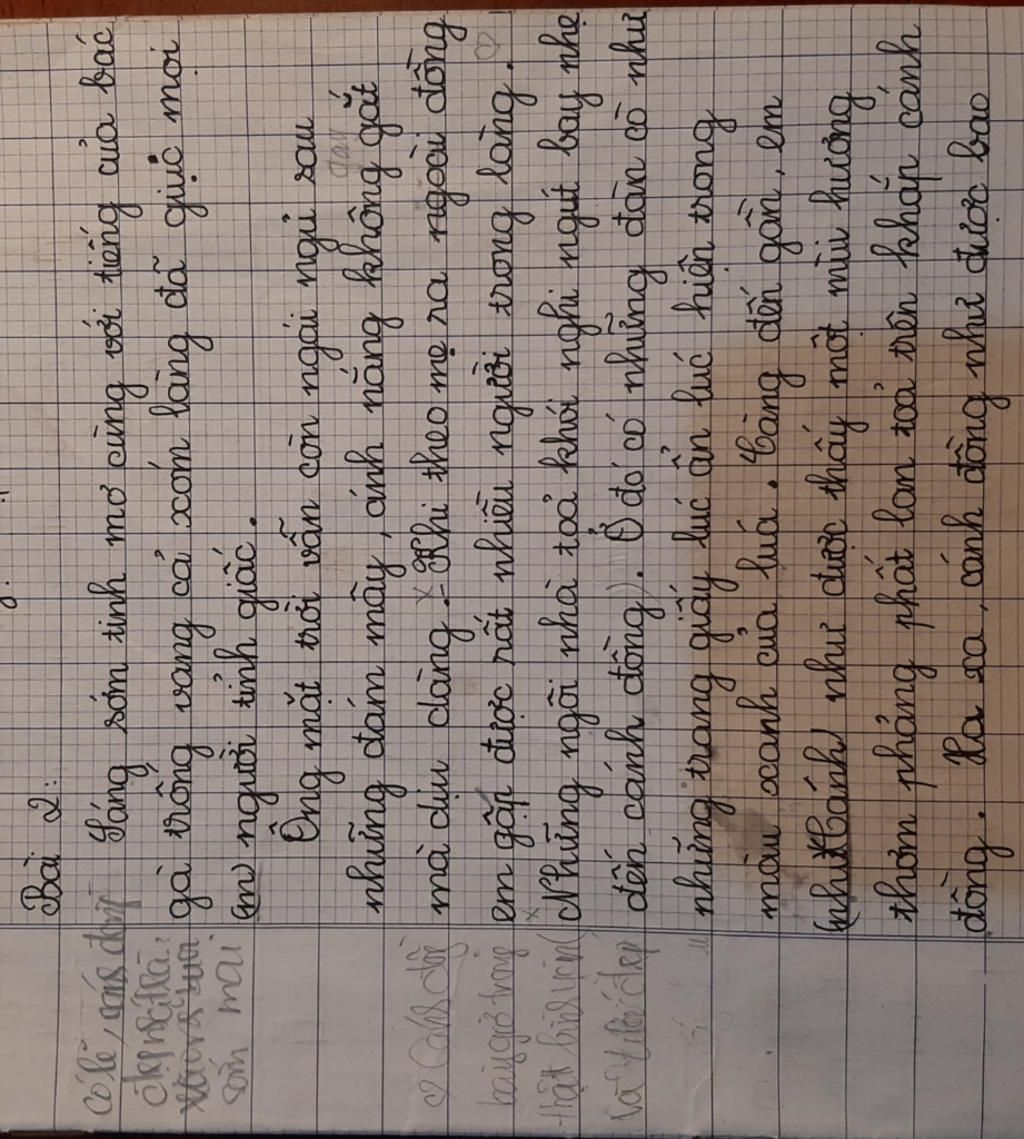 Bài 2:
Sáng sớm tinh mơ cùng với tiếng của bác
gà trống vang cả xóm làng đã giục mọi
(m) người tỉnh giấc.
Ông mặt trời vẫn còn ngái ngủ sau
những đám mây, ánh nắng không gắt
mà dịu dàng. Khi theo mẹ ra ngoài đồng
em gặp được rất nhiều người trong làng.
Những ngôi nhà toả khói nghi ngút bay nhẹ
đến cánh đồng). Ở đó có những đàn cò như
những trang giấy lúc ẩn lúc hiện trong
màu xanh của luá. Càng đến gần, em
(như Cánh) như được thấy một mùi hương
thơm phảng phất lan toả trên khắp cánh
đồng. Xa xa, cánh đồng như được bao
Có lẽ, cánh đồng
đẹp nhất là:
sớm mai
Cánh đồng
bây giờ trông
thật bình yên